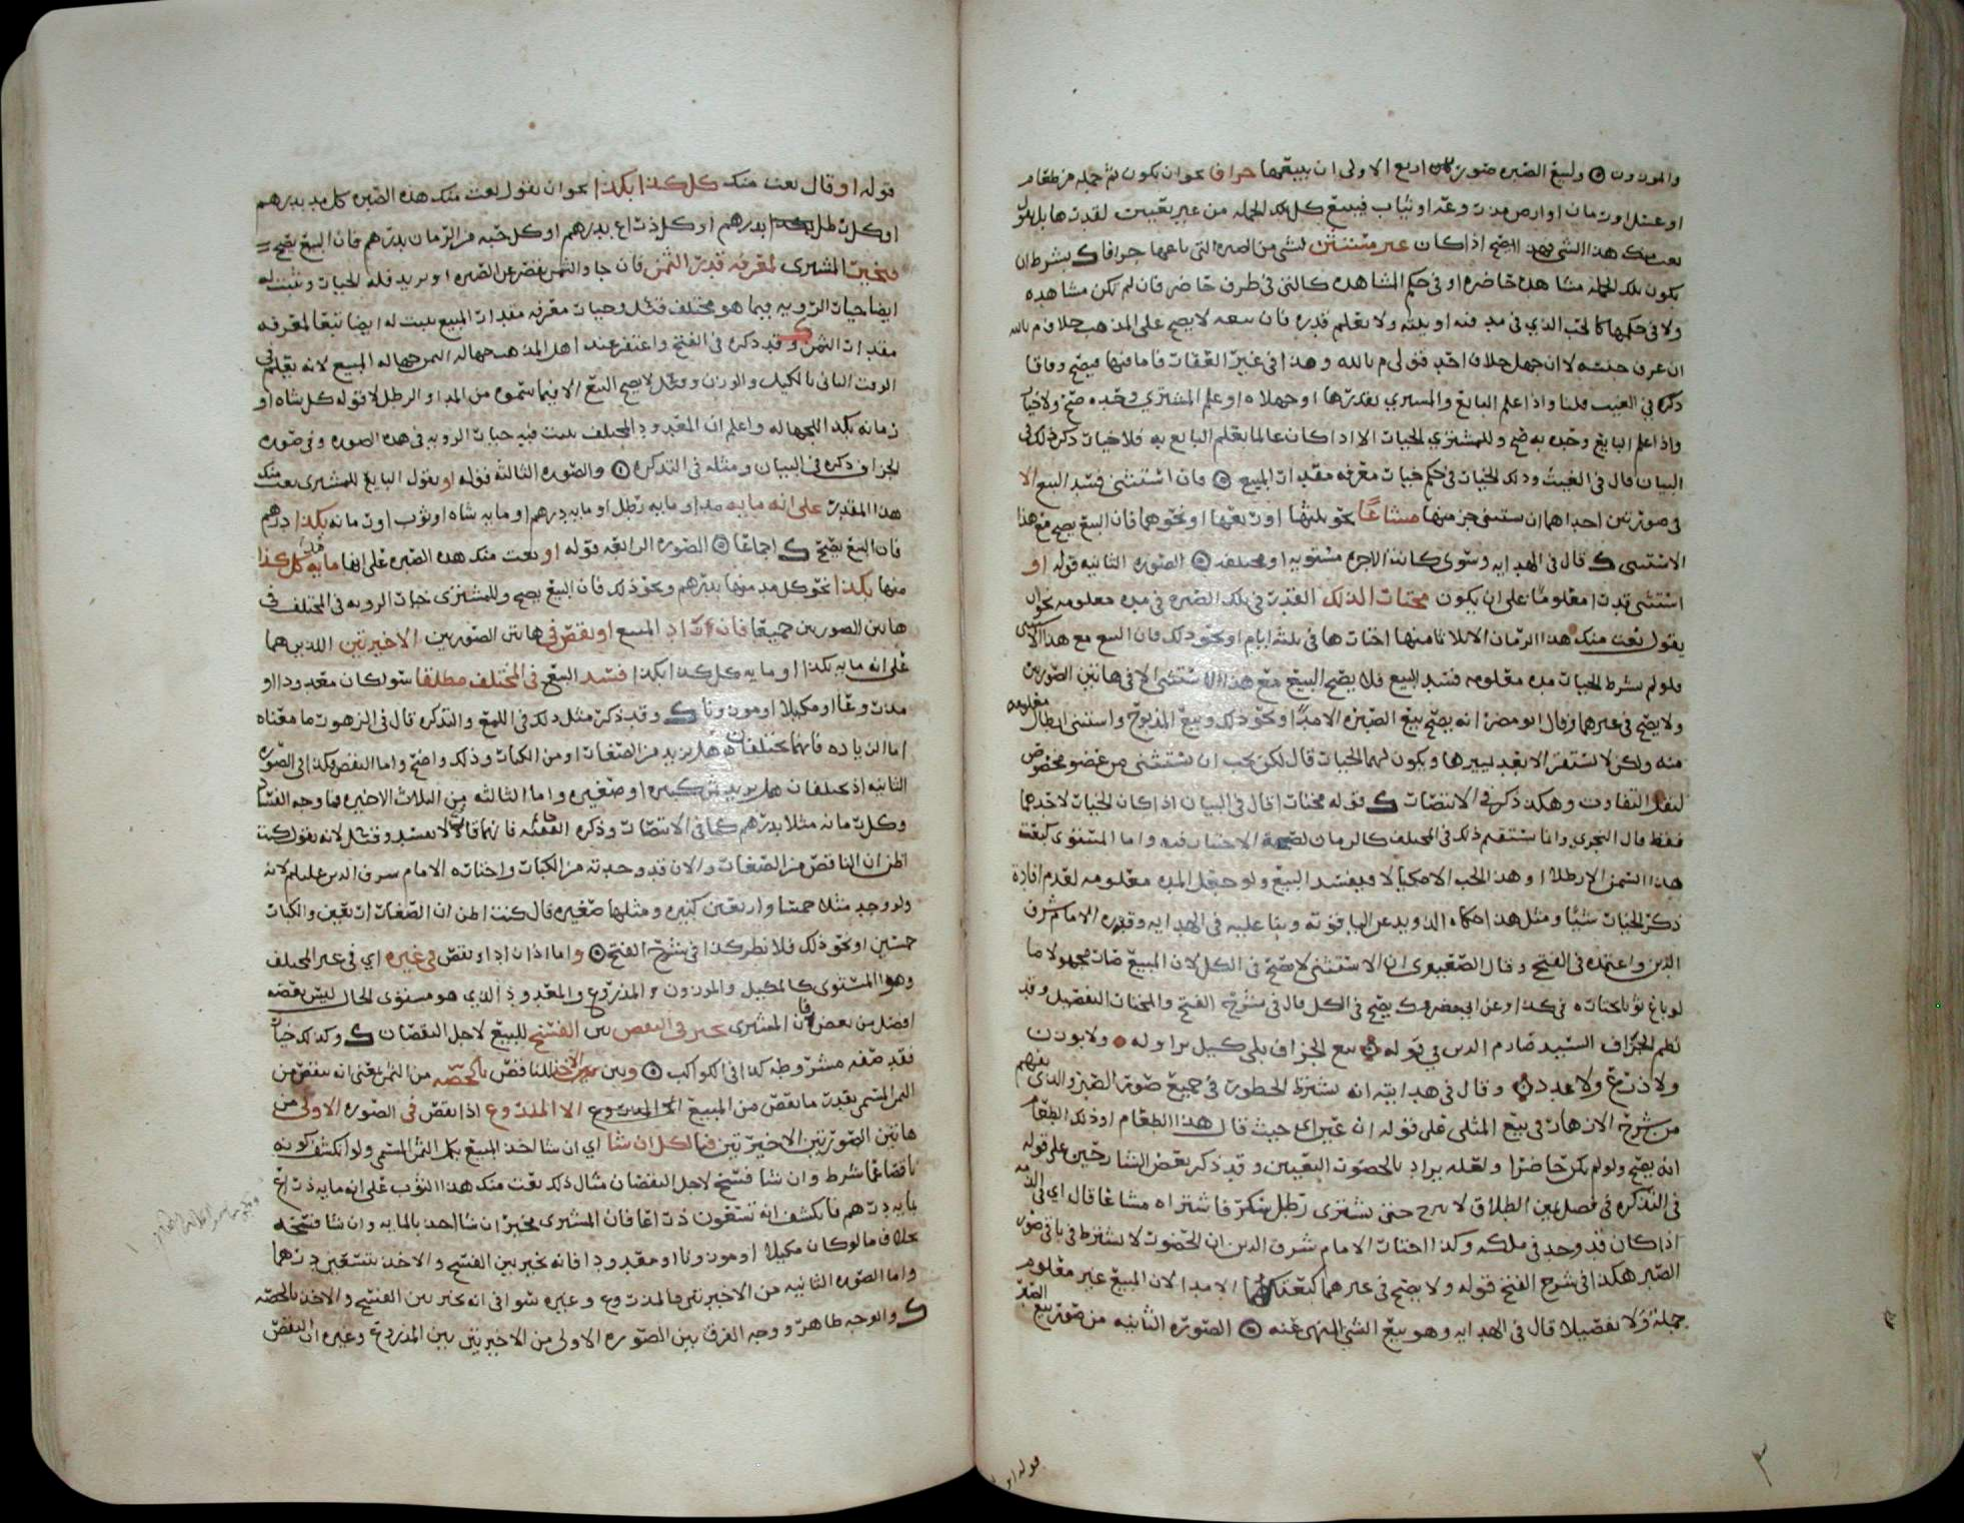 والموزون ولبيع الصبره صور اربع الاولى ان يبيعها جزافا نحو ان يكون ثم جمله من طعام
او عسل او رمان او ارض مذروعه او ثياب فيبيع كل تلك الجمله من غير تعيين لقدرها بل يقول
بعت منك هذا الشي فهذا يصح اذا كان غير مستثنى لشي من الصبره التي باعها جزافا بشرط ان
يكون تلك الجمله مشاهده حاضره او في حكم المشاهده كالتي في ظرف حاضر فان لم يكن مشاهده
ولا في حكمها كالحب الذي في مدفنه او بيته ولا يعلم قدره فان بيعه لا يصح على المذهب خلاف م بالله
ان عرف جنسه لا ان جهل خلاف احد قولي م بالله وهذا في غير الغقات فاما فيها فيصح وفاقا
ذكره في الغيث قلنا واذا علم البايع والمشتري بقدرها او جهلاه او علم المشتري وحده صح ولا خيار
واذا علم البايع وحده به صح وللمشتري الخيار الا اذا كان عالما بعلم البايع به فلا خيار ذكر ذلك في
البيان قال في الغيث وذلك الخيار في حكم خيار معرفه مقدار المبيع فان استثنى فسد البيع الا
في صورتين احداهما ان يستثنى جزء منها مشاعا نحو ثلثها او ربعها او نحوهما فان البيع يصح مع هذا
الاستثنى قال في الهدايه وسوى كانت الاجزاء مستويه او مختلفه الصوره الثانيه قوله او
استثنى قدرا معلوما على ان يكون مختارا لذلك القدر في تلك الصبره في مده معلومه نحو ان
يقول بعت منك هذا الرمان الا ثلاثا منها اختارها في ثلثه ايام او نحو ذلك فان البيع مع هذا الاستثنى
فلو لم يشرط الخيار مده معلومه فسد البيع فلا يصح البيع مع هذا الاستثنى الا في هاتين الصورتين
ولا يصح في غيرهما وقال ابو مضر انه يصح بيع الصبره الا مدا او نحو ذلك وبيع المذبوح واستثنى ارطال معلومه
منه ولكن لا يستقر الا بعد تمييزها ويكون لهما الخيار قال لكن يجب ان يستثنى من عضو مخصوص
لبعد التفاوت وهكذا ذكر في الانتصار قوله مختارا قال في البيان اذا كان الخيار لاحدهما
فقط قال النجري وانما يستقيم ذلك في المختلف كالرمان لصحة الاختيار فيه واما المستوى كبعت
هذا السمن الا رطلا او هذا الحب الا مكيالا فيفسد البيع ولو جعل المده معلومه لعدم افادة
ذكر الخيار شيئا ومثل هذا حكاه الدويد عن اليا قوته وبنا عليه في الهدايه وقرره الامام شرف
الدين واعتمده في الفتح وقال الصعيتري ان الاستثنى لا يصح في الكل لان المبيع صار مجهولا كما
لو باع ثوبا يختاره في كذا وعن ابي مضر يصح في الكل قال في شرح الفتح والمختار التفصيل وقد
نظم الجزاف السيد صارم الدين في قوله بيع الجزاف بلى كيل براوله ولا بوزن
ولا ذرع ولا عدد وقال في هدايته انه يشترط الحضور في جميع صور الصبر والذي يفهم
من شرح الازهار في بيع المثلي على قوله ان عين اي حيث قال هذا الطعام او ذلك الطعام
انه يصح ولو لم يكن حاضرا ولعله يراد بالحضور التعيين وقد ذكر بعض الشارحين على قوله
في التذكره في فصل يمين الطلاق لا برح حتى يشترى رطل سكر فاشتراه مشاعا قال اي في الذمه
اذا كان قد وجد في ملكه وكذا اختار الامام شرف الدين ان الحضور لا يشترط في باقي صور
الصبر هكذا في شرح الفتح قوله ولا يصح في غيرهما كبعتكها الا مدا لان المبيع غير معلوم
جملة ولا تفصيلا قال في الهدايه وهو بيع الشي المنهى عنه الصوره الثانيه من صور بيع الصبر
٣
قوله او
قوله او قال بعت منك كل كذا بكذا نحو ان يقول بعت منك هذه الصبره كل مد بدرهم
او كل رطل بدرهم او كل ذراع بدرهم او كل حبه من الرمان بدرهم فان البيع يصح
فيخير المشتري لمعرفه قدر الثمن فان جاء والثمن عن الصبره او يزيد فله الخيار ويثبت له
ايضا خيار الرويه فيما هو مختلف وخيار معرفه مقدار المبيع يثبت له ايضا تبعا لمعرفه
مقدار الثمن وقد ذكره في الفتح واغتفر عند اهل المذهب جهاله الثمن جهاله المبيع لانه يعلم في
الوقت الثاني بالكيل والوزن وقيل لا يصح البيع الا فيما سموه من المد او الرطل لا قوله كل شاه او
رمانه بكذا للجهاله واعلم ان المعدود المختلف يثبت فيه خيار الرويه في هذه الصوره وفي صوره
الجزاف ذكره في البيان ومثله في التذكره والصوره الثالثه قوله او يقول البايع للمشترى بعت منك
هذا المقدر على انه مايه مد او مايه رطل او مايه درهم او مايه شاه او ثوب او رمانه بكذا درهم
فان البيع يصح اجماعا الصوره الرابعه قوله او بعت منك هذه الصبره على انها مايه مد كل كذا
منها بكذا نحو كل مد منها بدرهم ونحو ذلك فان البيع يصح وللمشترى خيار الرويه في المختلف في
هاتين الصورتين جميعا فان زاد المبيع او نقص في هاتين الصورتين الاخيرتين اللذين هما
على انه مايه بكذا او مايه كل كذا بكذا فسد البيع في المختلف مطلقا سوا كان معدودا او
مذروعا او مكيلا او موزونا وقد ذكر مثل ذلك في اللمع والتذكره قال في الزهور ما معناه
اما الزياده فانهما يختلفان هل يزيد من الصغار او من الكبار وذلك واضح واما النقص فكذا في الصوره
الثانيه اذ يختلفان هل يزيد كبيره او صغيره واما الثالثه من الثلاث الاخيره فما وجه الفساد
وكل رمانه مثلا بدرهم كما في الانتصار وذكره الفقيه فانهما قالا لا يفسد وقيل لانه يقول كنت
اظن ان الناقص من الصغار والان قد وجدته من الكبار واختاره الامام شرف الدين عليلم لانه
ولو وجد مثلا خمسا واربعين كبيره ومثلها صغيره قال كنت اظن ان الصغار اربعين والكبار
خمسين او نحو ذلك فلا نظر كذا في شرح الفتح واما اذا زاد او نقص في غيره اي في غير المختلف
وهو المستوى كالمكيل والموزون والمذروع والمعدود الذي هو مستوى الحال ليس بعضه
افضل من بعض فان المشترى يخير في النقص بين الفسخ للبيع لاجل النقصان وكذلك خيار
فقد صفه مشروطه كذا في الكواكب وبين الاخذ للناقص بالحصه من الثمن يعني انه ينقص من
الثمن المسمى بقدر ما نقص من المبيع الا المذروع اذا نقص في الصوره الاولى من
هاتين الصورتين الاخيرتين فبالكل ان شا اي ان شا اخذ المبيع بكل الثمن المسمى ولو انكشف كونه
ناقصا عما شرط وان شا فسخ لاجل النقصان مثال ذلك بعت منك هذا الثوب على انه مايه ذراع
بمايه درهم فانكشف انه تسعون ذراعا فان المشترى مخير ان شا اخذ بالمايه وان شا فسخه
بخلاف ما لو كان مكيلا او موزونا او معدودا فانه يخير بين الفسخ والاخذ بتسعين درهما
واما الصوره الثانيه من الاخيرتين فالمذروع وغيره سوا في انه يخير بين الفسخ والاخذ بالحصه
والوجه ظاهر ووجه الفرق بين الصوره الاولى من الاخيرتين بين المذروع وغيره ان النقص